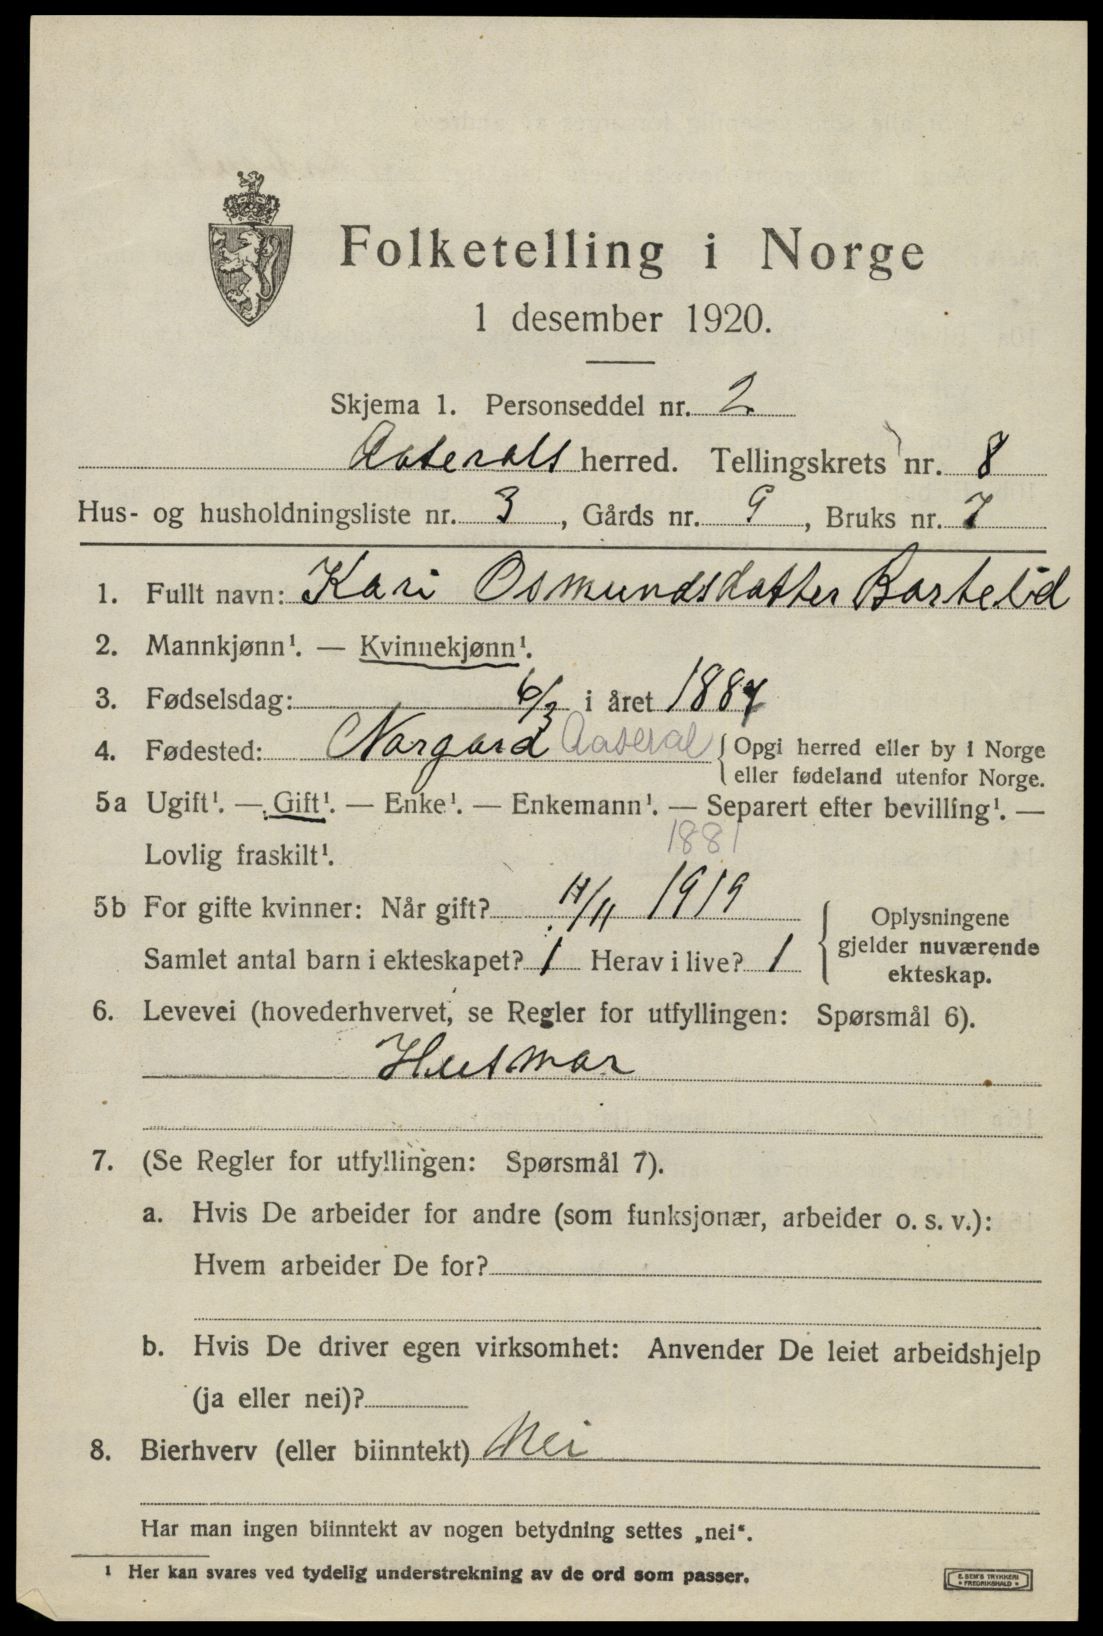 Folketelling i Norge
1 desember 1920.
Skjema 1. Personseddel nr. 2
Aaseralsherred. Tellingskrets nr. 8
Hus- og husholdningsliste nr. 3, Gårds nr. 9, Bruks nr. 7
1. Fullt navn: Kari Osmundsdatter Bortelid
2. Mannkjønn¹. — Kvinnekjønn¹.
3. Fødselsdag: 6/3 i året 1887
4. Fødested: Norgard Aaseral {Opgi herred eller by i Norge
eller fødeland utenfor Norge.
5a Ugift¹. — Gift¹. — Enke¹. — Enkemann¹. — Separert efter bevilling¹. —
Lovlig fraskilt¹. 1881
5b For gifte kvinner: Når gift? /11 1919
Samlet antal barn i ekteskapet? 1 Herav i live? 1
{Oplysningene
gjelder nuværende
ekteskap.
6. Levevei (hovederhvervet, se Regler for utfyllingen: Spørsmål 6).
Husmor
7. (Se Regler for utfyllingen: Spørsmål 7).
a. Hvis De arbeider for andre (som funksjonær, arbeider o. s. v.):
Hvem arbeider De for?
b. Hvis De driver egen virksomhet: Anvender De leiet arbeidshjelp
(ja eller nei)?
8. Bierhverv (eller biinntekt) Nei
Har man ingen biinntekt av nogen betydning settes „nei“.
¹ Her kan svares ved tydelig understrekning av de ord som passer.
E. SEM'S TRYKKERI
* FREDRIKSHALD *